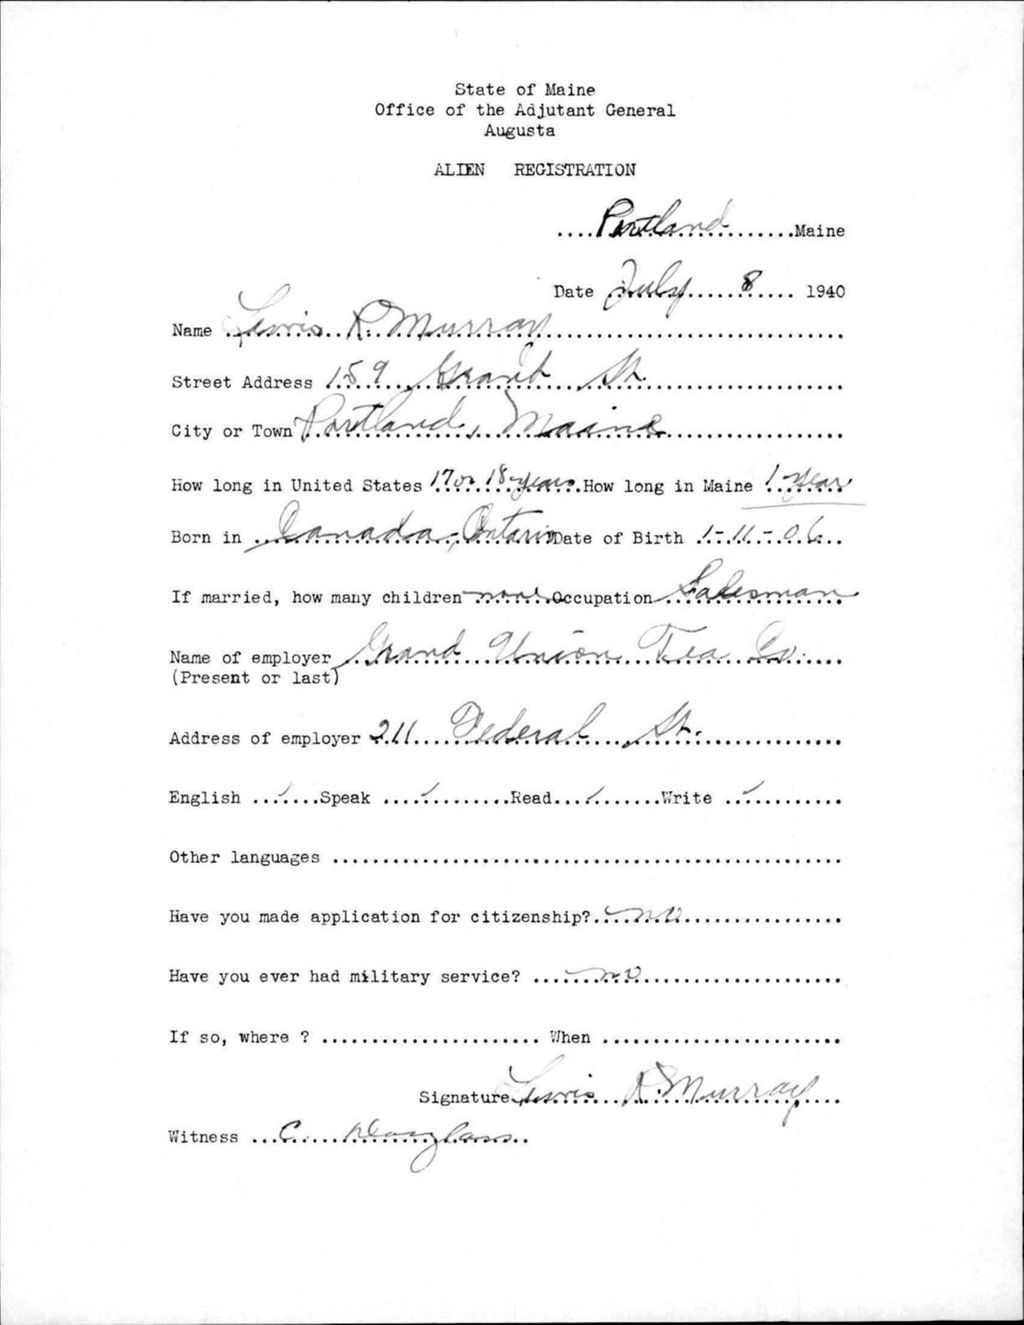 State of Maine
Office of the Adjutant General
Augusta
ALIEN REGISTRATION
....Portland........Maine
Date July 8 1940
Name Lewis R. Murray
Street Address 159 Grant St.
City or Town Portland, Maine
How long in United States 17 or 18 years How long in Maine 1 year
Born in Canada, Ontario Date of Birth 1-11-06
If married, how many children none Occupation Salesman
Name of employer Grand Union Tea Co.
(Present or last)
Address of employer 211 Federal St.
English ✓ Speak ✓ Read ✓ Write ✓
Other languages
Have you made application for citizenship? no
Have you ever had military service? no
If so, where ? When
Signature Lewis R Murray
Witness C. Douglass